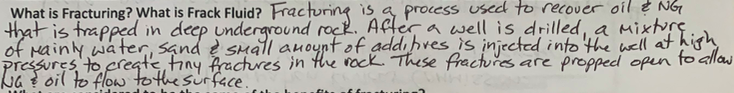 What is Fracturing? What is Frack Fluid? Fracturing is a process used to recover oil & NG
that is trapped in deep underground rock. After a well is drilled, a mixture
of mainly water, sand & small amount of additives is injected into the well at high
pressures to create tiny fractures in the rock. These fractures are propped open to allow
NG & oil to flow to the surface.